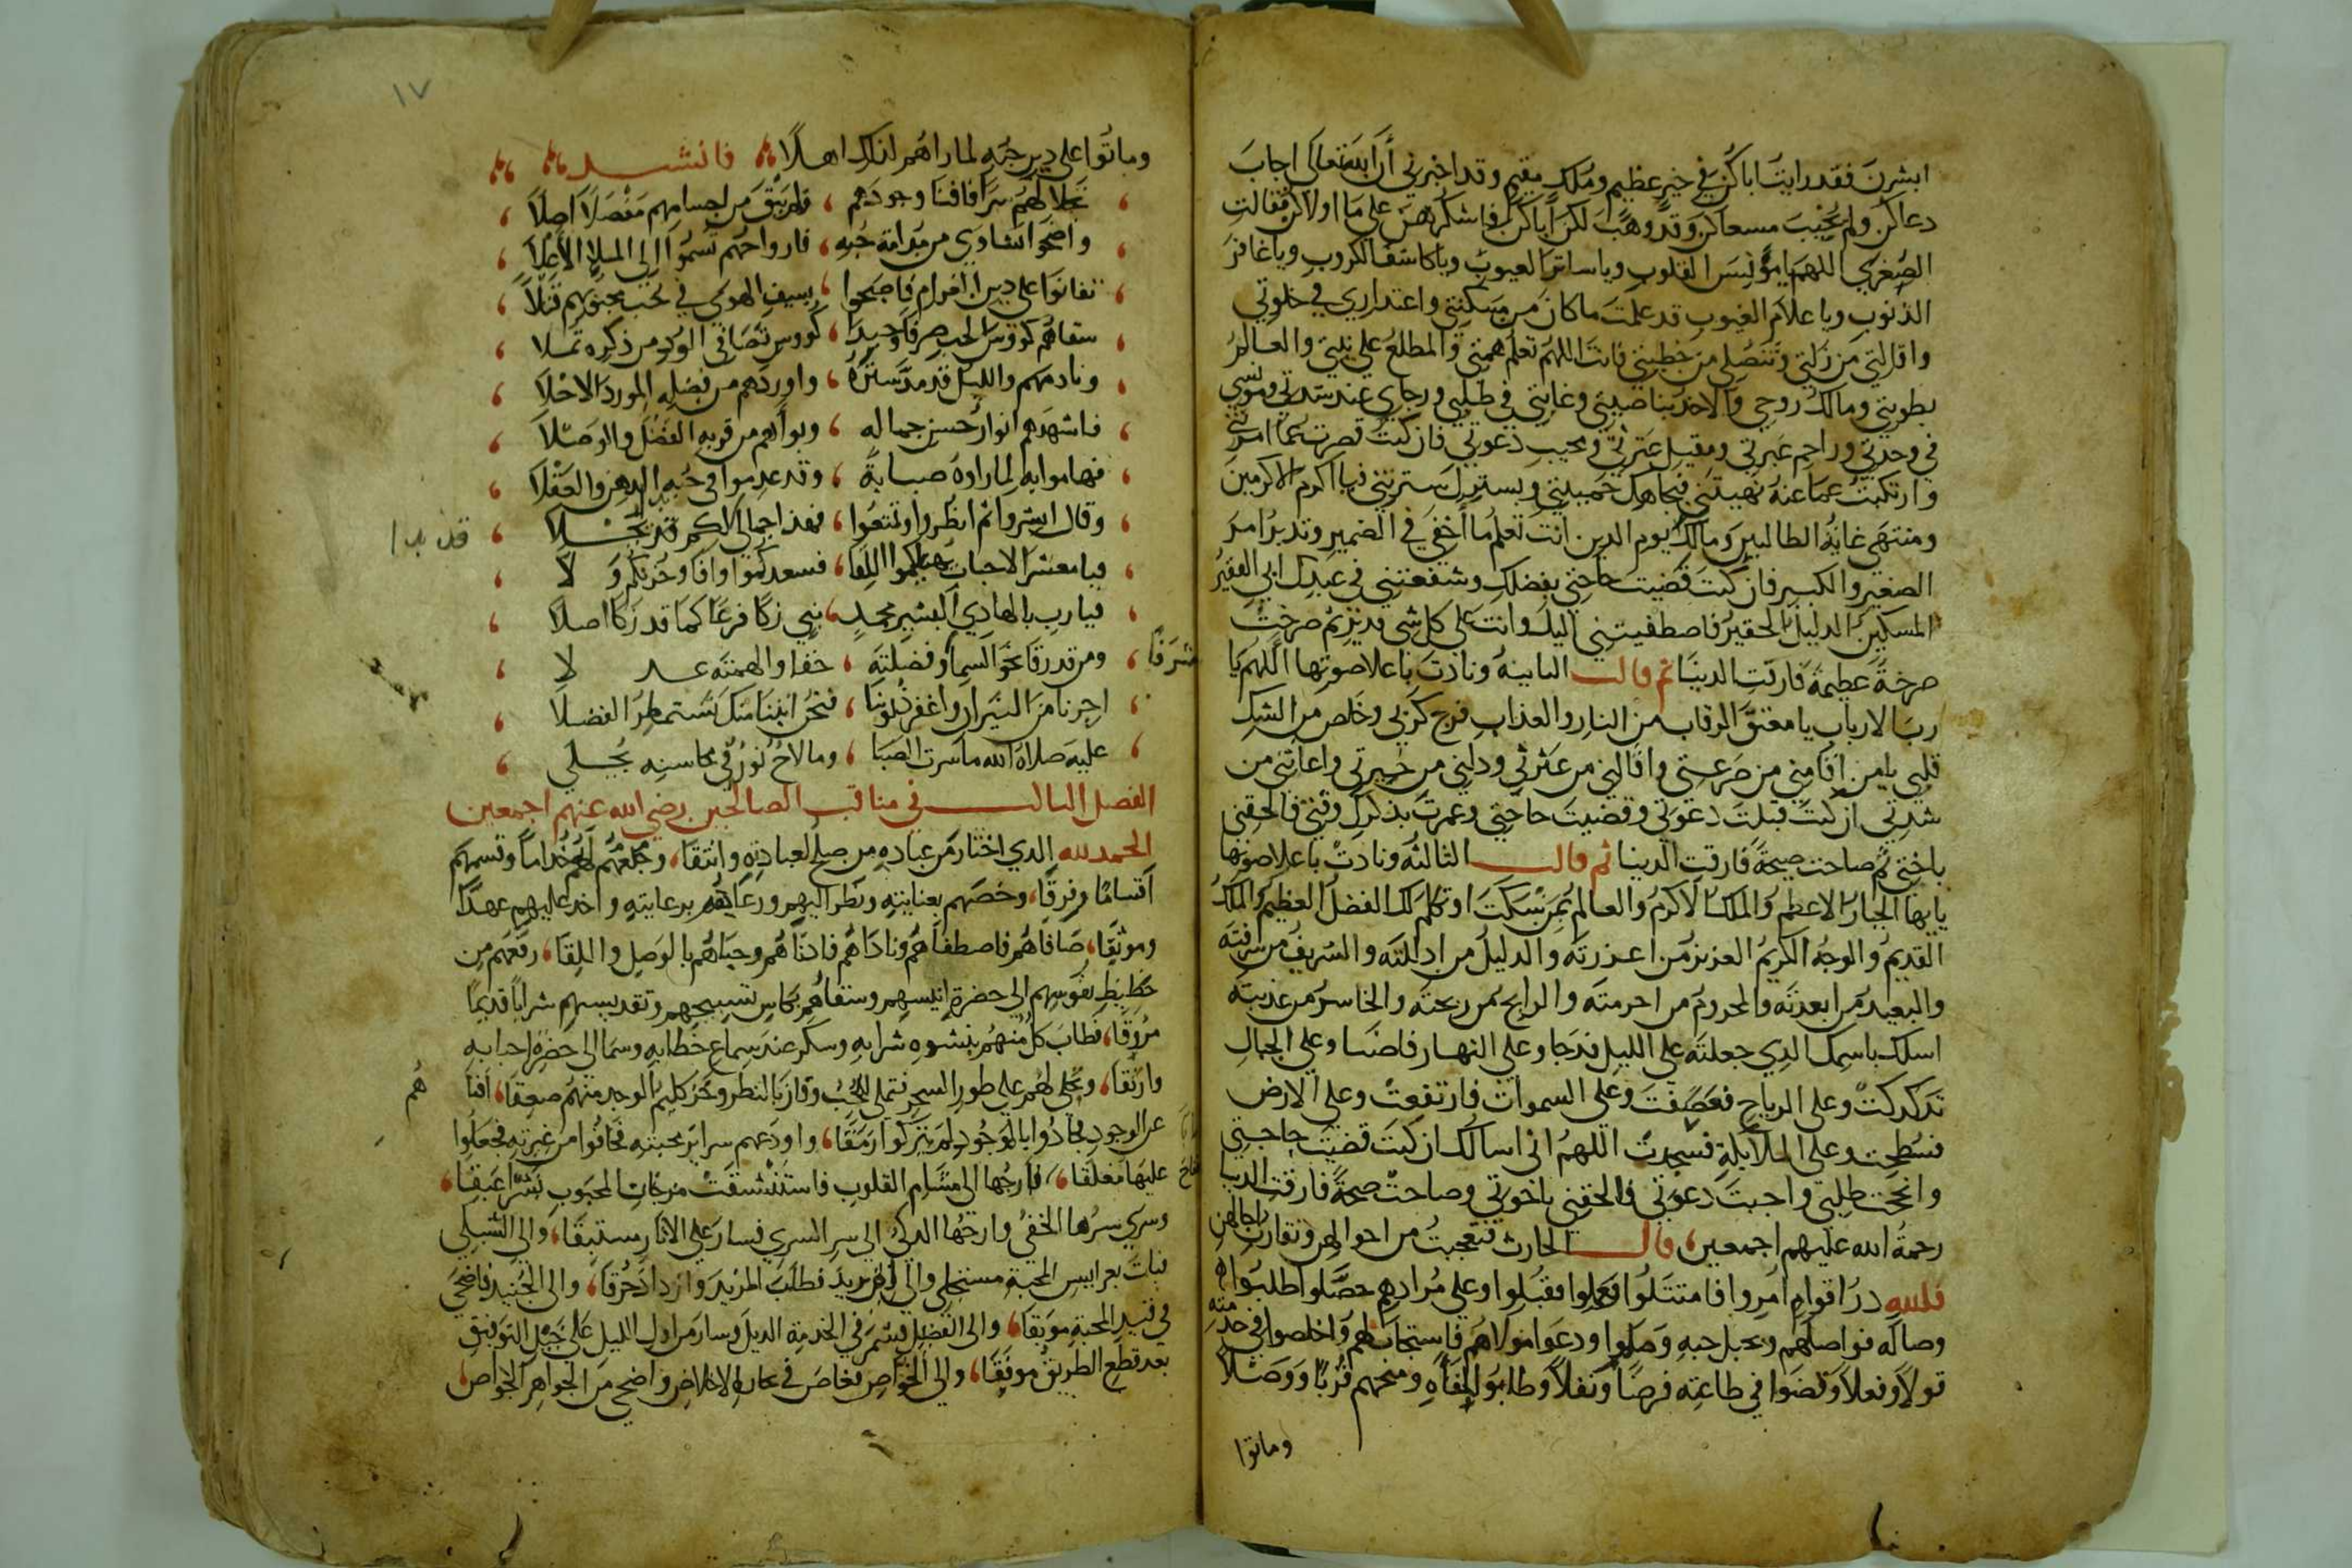 ابشرن فقد رايت اباكن في خير عظيم وملك مقيم وقد اخبرني أن الله تعالى اجاب
دعاكن ولم يخيب مسعاكن وقد وهب لكن اباكن فاشكرنه على ما اولاكن فقالت
الصغرى اللهم يا مؤنس القلوب ويا ساتر العيوب ويا كاشف الكروب ويا غافر
الذنوب ويا علام الغيوب قد علمت ما كان من مسكنتي واعتذاري في خلوتي
واقالتي من زلتي وتنصلي من خطيتي فانت اللهم تعلم همتي والمطلع على نيتي والعالم
بطويتي ومالك روحي والاخذ بناصيتي وغايتي في طلبي ورجاي عند شدتي ومونسي
في وحدتي وراحم عبرتي ومقيل عثرتي ومجيب دعوتي فان كنت قصرت عما امرتني
وارتكبت عما عنه نهيتني فبحلمك حميتني وبسترك سترتني فيا اكرم الاكرمين
ومنتهى غاية الطالبين ومالك يوم الدين انت تعلم ما أخفي في الضمير وتدبر امر
الصغير والكبير فان كنت قضيت حاجتي بفضلك وشفعتني في عبدك ابي الفقير
المسكين الدليل الحقير فاصطفيتني اليك وانت على كل شي قدير ثم صرخت
صرخة عظيمة فارقت الدنيا ثم قالت الثانية ونادت باعلا صوتها اللهم يا
رب الارباب يا معتق الرقاب من النار والعذاب فرج كربي وخلص من الشك
قلبي يا من اقامني من صرعتي واقالني من عثرتي ودلني من حيرتي واعانني من
شدتي ان كنت قبلت دعوتي وقضيت حاجتي وعمرت بذكرك وقتي فالحقني
باختي ثم صاحت صيحة فارقت الدنيا ثم قالت الثالثة ونادت باعلا صوتها
يايها الجبار الاعظم والملك الاكرم والعالم بمن سكت او تكلم لك الفضل العظيم والملك
القديم والوجه الكريم العزيز من اعززته والدليل من ادللته والشريف من شرفته
والبعيد من ابعدته والمحروم من احرمته والرابح من ربحته والخاسر من عذبته
اسلك باسمك الدي جعلته على الليل فدجا وعلى النهار فاضا وعلى الجبال
تدكدكت وعلى الرياح فعصفت وعلى السموات فارتفعت وعلى الارض
فسطحت وعلى الملايكة فسجدت اللهم اني اسالك ان كنت قضيت حاجتي
وانجحت طلبتي واجبت دعوتي فالحقني باخوتي وصاحت صيحة فارقت الدنيا
رحمة الله عليهم اجمعين قال الحارث فتعجبت من احوالهن وتقارب اجالهن
فلله در اقوام امروا فامتثلوا فعملوا فقبلوا وعلى مرادهم حصلوا طلبوا
وصاله فواصلهم وبحبل حبه وصلوا ودعوا مولاهم فاستجاب لهم واخلصوا في خدمته
قولا وفعلا وقضوا في طاعته فرضا ونفلا وطابوا للقاه ومنحهم قربا ووصلا
وماتوا
١٧
وماتوا على دين حبه لما راهم لذلك اهلا فانشد
تجلا لهم سرا فافنا وجودهم ، فلم يبق من اجسامهم مفصلا اصلا
واضحوا نشاوى من مدامة حبه ، فارواحهم تسموا الى الملا الاعلا
تفانوا على دين الغرام فاصبحوا ، بسيف الهوى في حب محبوبهم قتلا
سقاهم كووس الحب صرفا وحبذا ، كووس تصافي الود من ذكره تملا
ونادمهم والليل قد مد ستره ، واوردهم من فضله المورد الاحلا
فاشهدهم انوار حسن جماله ، وبواهم من قربه الفضل والوصلا
فهاموا به لما راوه صبابة ، وقد عدموا في حبه الدهن والعقلا
وقال ابشروا ثم انظروا وتمتعوا ، فهذا جمالي لكم قد تجلا
قد بدا
فيا معشر الاحباب يهنيكموا اللقا ، فسعدكموا وافا وحزنكم ولا
فيا رب بالهادي البشير محمد ، نبي زكا فرعا كما قد زكا اصلا
ومن قد رقا نحو السما وفضلته ،
شرفا
اجرنا من النيران واغفر ذنوبنا ، فنحن اتينا منك نستمطر الفضلا
عليه صلاة الله ما سرت الصبا ، وما لاح نور في محاسنه يجلى
الفصل الثالث في مناقب الصالحين رضي الله عنهم اجمعين
الحمد لله الدي اختار من عباده من صلح لعبادته وانتقا ، وجعلهم له خداما وقسمهم
اقساما وفرقا ، وخصهم بعنايته ونظر اليهم ورعاهم برعايته واخذ عليهم عهدا
وموثقا ، صافاهم فاصطفاهم وناداهم فادناهم وحباهم بالوصل واللقا ، رفعهم من
حظيظ نفوسهم الى حضرة انيسهم وسقاهم بكاس تسبيحهم وتقديسهم شرابا قديما
مروقا ، فطاب كل منهم بنشوه شرابه وسكر عند سماع خطابه وسما الى حضرة احبابه
وارتقا ، وتجلى لهم على طور السحر فتملى المحب وفاز بالنظر وخر كليم الوجد منهم صعقا ، افنا
هم
عن الوجود فجادوا بالموجود ولم يتركوا رمقا ، واودعهم سراير محبته فخافوا من غيرته فجعلوا
عليها مغلقا ، فارجها الى مشام القلوب فاستنشقت من جات المحبوب نشرا عبقا ،
وسرى سرها الخفي وارجها الدكي الى سر السري فسار على الاثار مستبقا ، والى الشبلي
فبات بعرايس المحبة مستجلى والى ابي يزيد فطلب المزيد وازداد حرقا ، والى الجنيد فاضحى
في قيد المحبة موثقا ، والى الفضيل فشمر في الخدمة الديل وسار من اول الليل على خيل التوفيق
بعد قطع الطريق موفقا ، والى الخواص فغاص في بحار الاخلاص واضحى من الجواهر الخواص